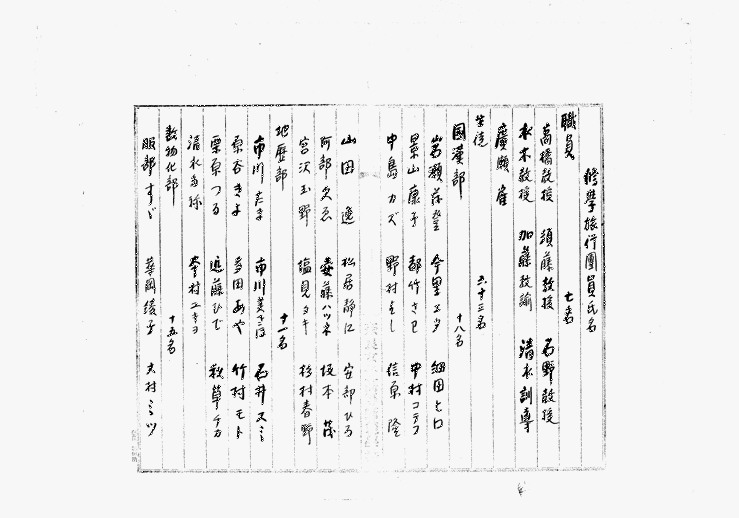 修學旅行團員氏名
職員 七名
高橋教授 須藤教授 石野教授
水木教授 加藤教諭 清水訓導
廣瀬 雀
生徒 六十三名
國漢部 十八名
岩瀬 今里エダ 細田とわ
景山薫子 都竹さだ 中村コテフ
中島カズ 野村よし 信原隆
山田逸 松居靜江 安部ひろ
阿部久ゑ 安藤ハツネ 坂本茂
宮沢玉野 塩見タキ 杉村春野
地歴部 十一名
市川たま 南川 石井スミ
原谷きよ 多田あや 竹村モト
栗原つる 近藤ひで 秋草チカ
清水 峯村ユキヨ
数物化部 十五名
服部すゞ 華岡綾子 大村ミツ